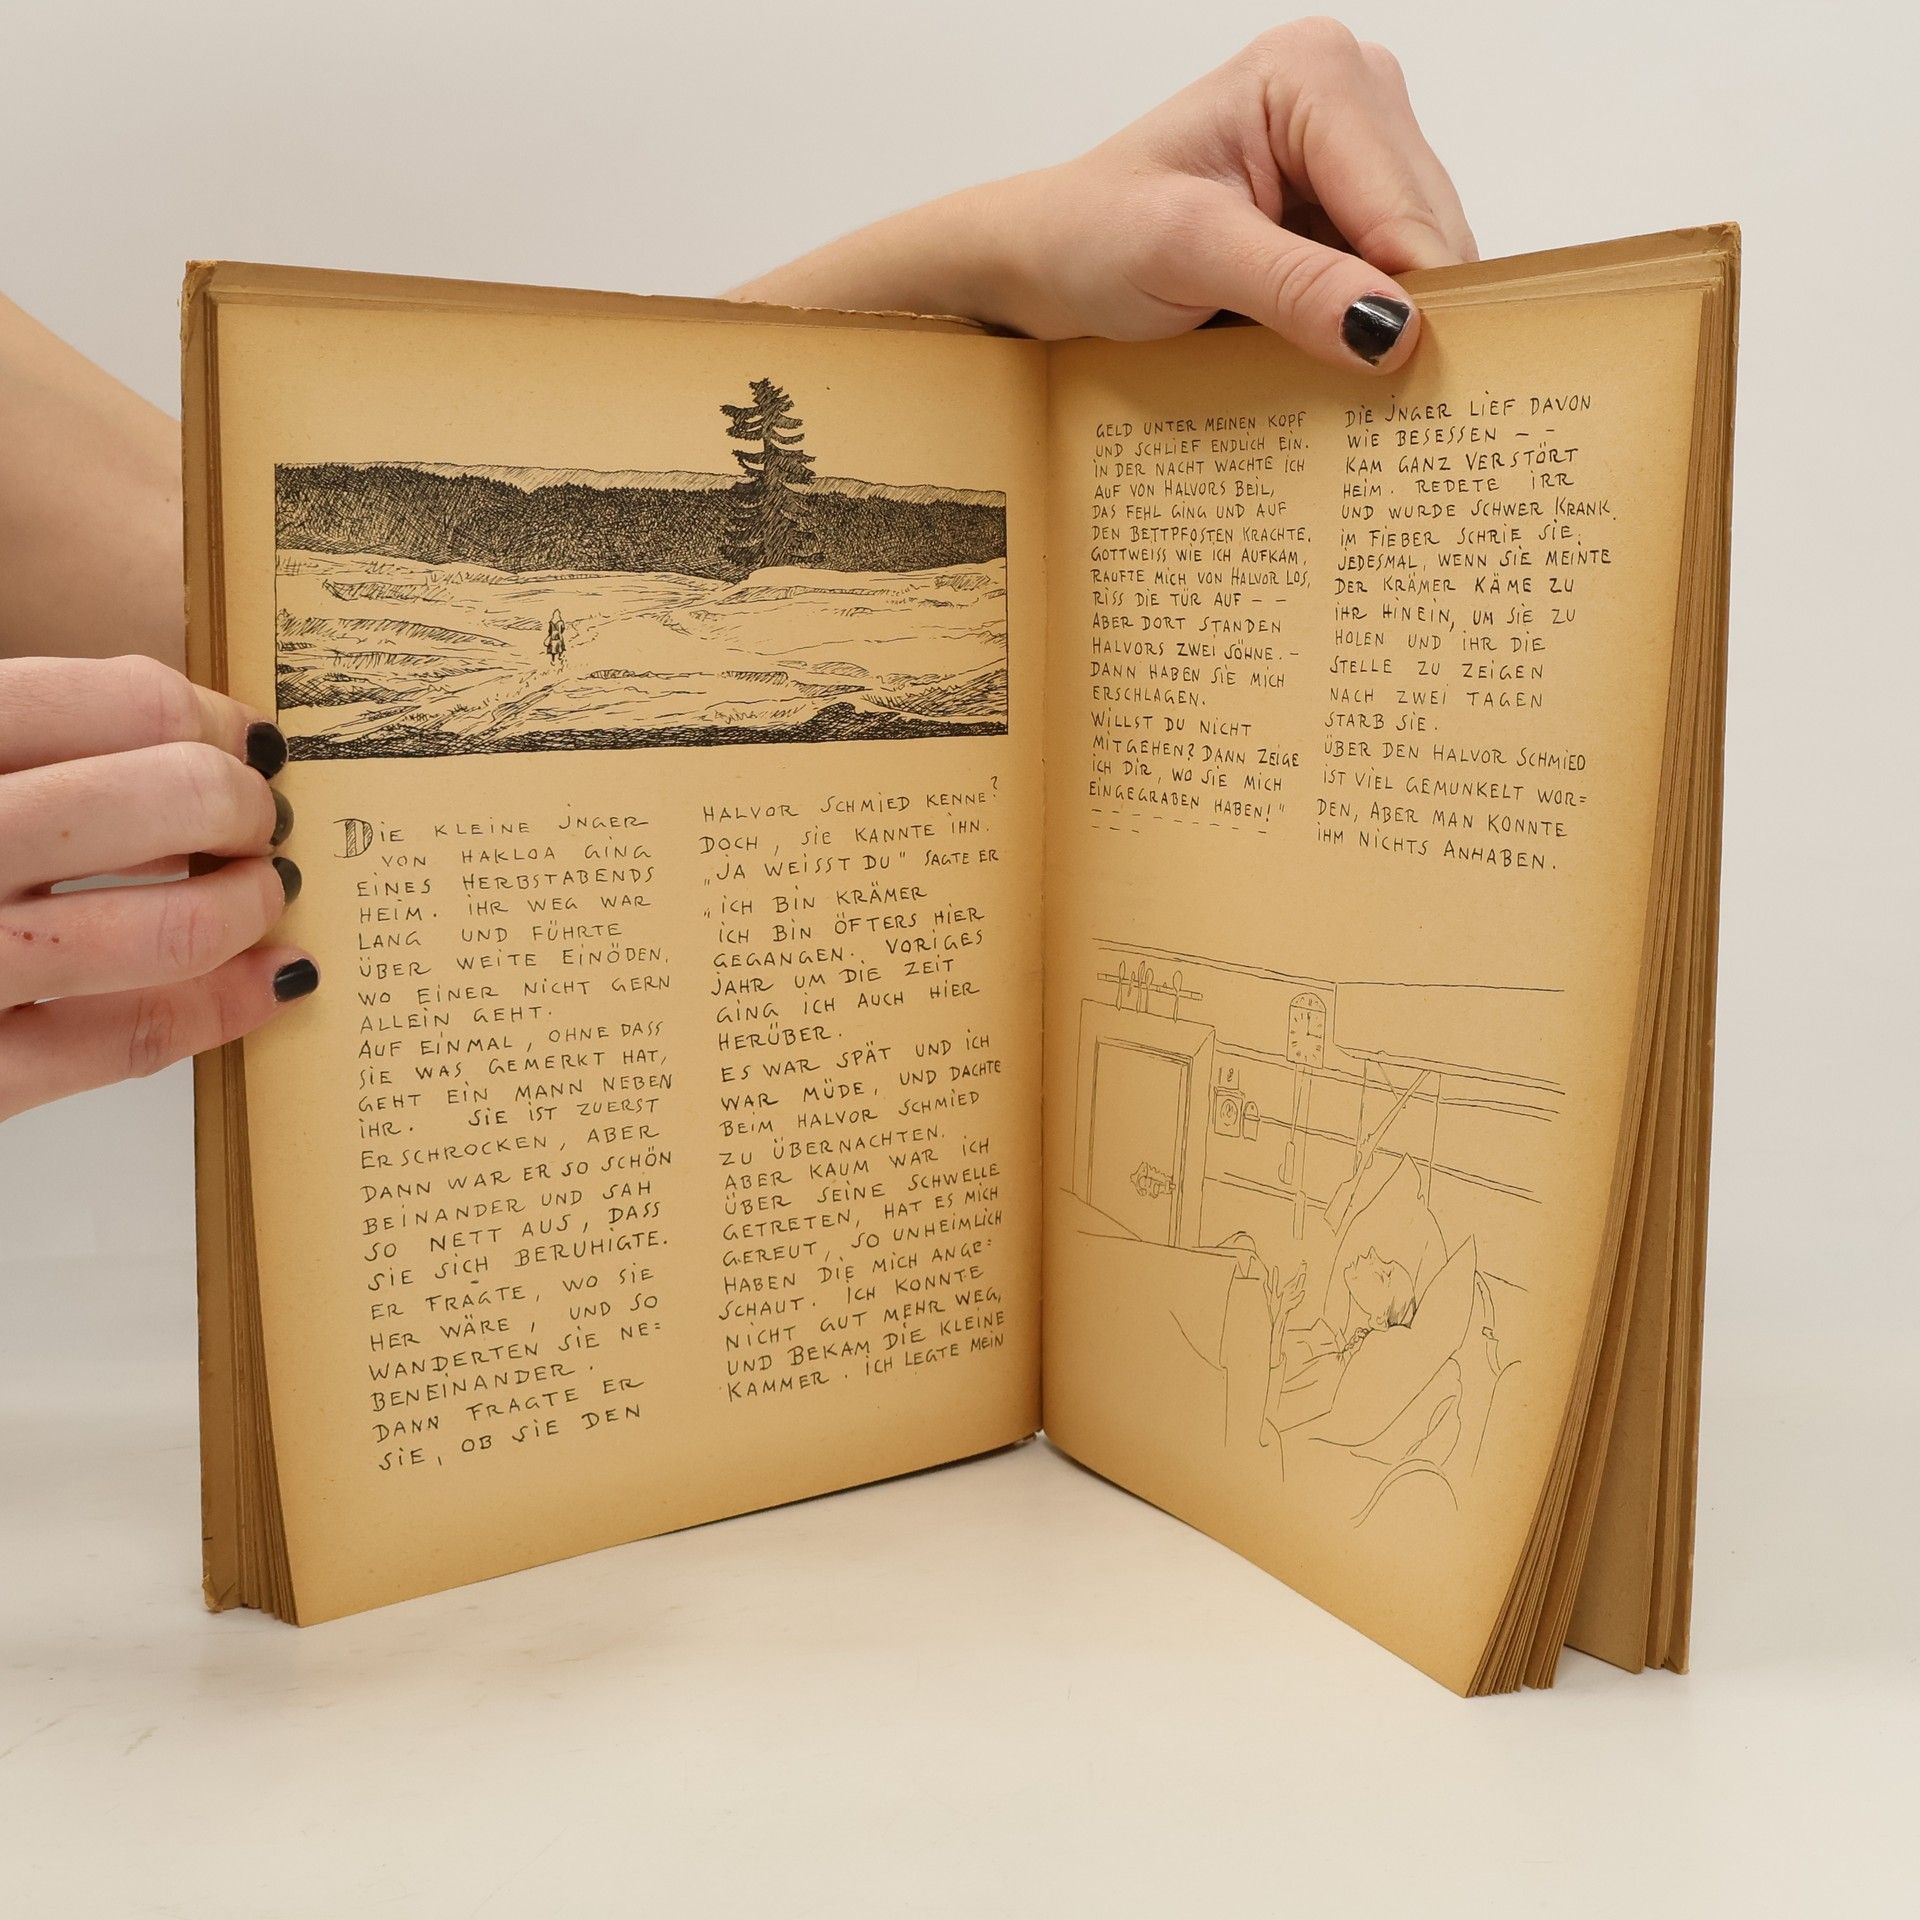 DIE KLEINE INGER
VON HAKLOA GING
EINES HERBSTABENDS
HEIM. IHR WEG WAR
LANG UND FÜHRTE
ÜBER WEITE EINÖDEN,
WO EINER NICHT GERN
ALLEIN GEHT.
AUF EINMAL, OHNE DASS
SIE WAS GEMERKT HAT,
GEHT EIN MANN NEBEN
IHR. SIE IST ZUERST
ERSCHROCKEN, ABER
DANN WAR ER SO SCHÖN
BEINANDER UND SAH
SO NETT AUS, DASS
SIE SICH BERUHIGTE.
ER FRAGTE, WO SIE
HER WÄRE, UND SO
WANDERTEN SIE NE=
BENEINANDER.
DANN FRAGTE ER
SIE, OB SIE DEN
HALVOR SCHMIED KENNE?
DOCH, SIE KANNTE IHN.
„JA WEISST DU" SAGTE ER
„ICH BIN KRÄMER
ICH BIN ÖFTERS HIER
GEGANGEN. VORIGES
JAHR UM DIE ZEIT
GING ICH AUCH HIER
HERÜBER.
ES WAR SPÄT UND ICH
WAR MÜDE, UND DACHTE
BEIM HALVOR SCHMIED
ZU ÜBERNACHTEN.
ABER KAUM WAR ICH
ÜBER SEINE SCHWELLE
GETRETEN, HAT ES MICH
GEREUT, SO UNHEIMLICH
HABEN DIE MICH ANGE=
SCHAUT. ICH KONNTE
NICHT GUT MEHR WEG,
UND BEKAM DIE KLEINE
KAMMER. ICH LEGTE MEIN
GELD UNTER MEINEN KOPF
UND SCHLIEF ENDLICH EIN.
IN DER NACHT WACHTE ICH
AUF VON HALVORS BEIL,
DAS FEHL GING UND AUF
DEN BETTPFOSTEN KRACHTE.
GOTTWEISS WIE ICH AUFKAM,
RAUFTE MICH VON HALVOR LOS,
RISS DIE TÜR AUF – –
ABER DORT STANDEN
HALVORS ZWEI SÖHNE. –
DANN HABEN SIE MICH
ERSCHLAGEN.
WILLST DU NICHT
MITGEHEN? DANN ZEIGE
ICH DIR, WO SIE MICH
EINGEGRABEN HABEN!"
– – – – – – – – –
– – –
DIE INGER LIEF DAVON
WIE BESESSEN – –
KAM GANZ VERSTÖRT
HEIM. REDETE IRR
UND WURDE SCHWER KRANK.
IM FIEBER SCHRIE SIE,
JEDESMAL, WENN SIE MEINTE
DER KRÄMER KÄME ZU
IHR HINEIN, UM SIE ZU
HOLEN UND IHR DIE
STELLE ZU ZEIGEN
NACH ZWEI TAGEN
STARB SIE.
ÜBER DEN HALVOR SCHMIED
IST VIEL GEMUNKELT WOR=
DEN, ABER MAN KONNTE
IHM NICHTS ANHABEN.
18